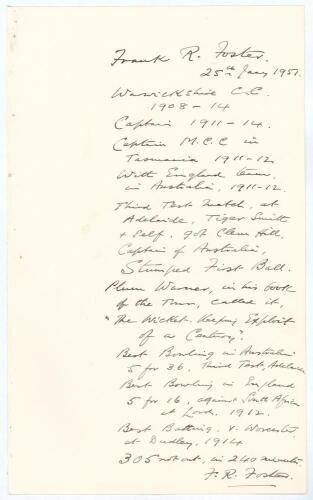 Frank R. Foster.
25th Jany 1951.
Warwickshire C.C.
1908-14
Captain 1911-14.
Captain M.C.C in
Tasmania 1911-12
With England team
in Australia, 1911-12.
Third Test match, at
Adelaide, Tiger Smith
& Self. got Clem Hill,
Captain of Australia,
Stumped First Ball.
Plum Warner, in his book
of the Tour, called it,
"The Wicket-Keeping Exploit
of a Century".
Best Bowling in Australia
5 for 36, Third Test, Adelaide
Best Bowling in England
5 for 16, against South Africa
at Lord. 1912.
Best Batting. v. Worcester,
at Dudley, 1914
305 not out, in 240 minutes.
F. R. Foster.